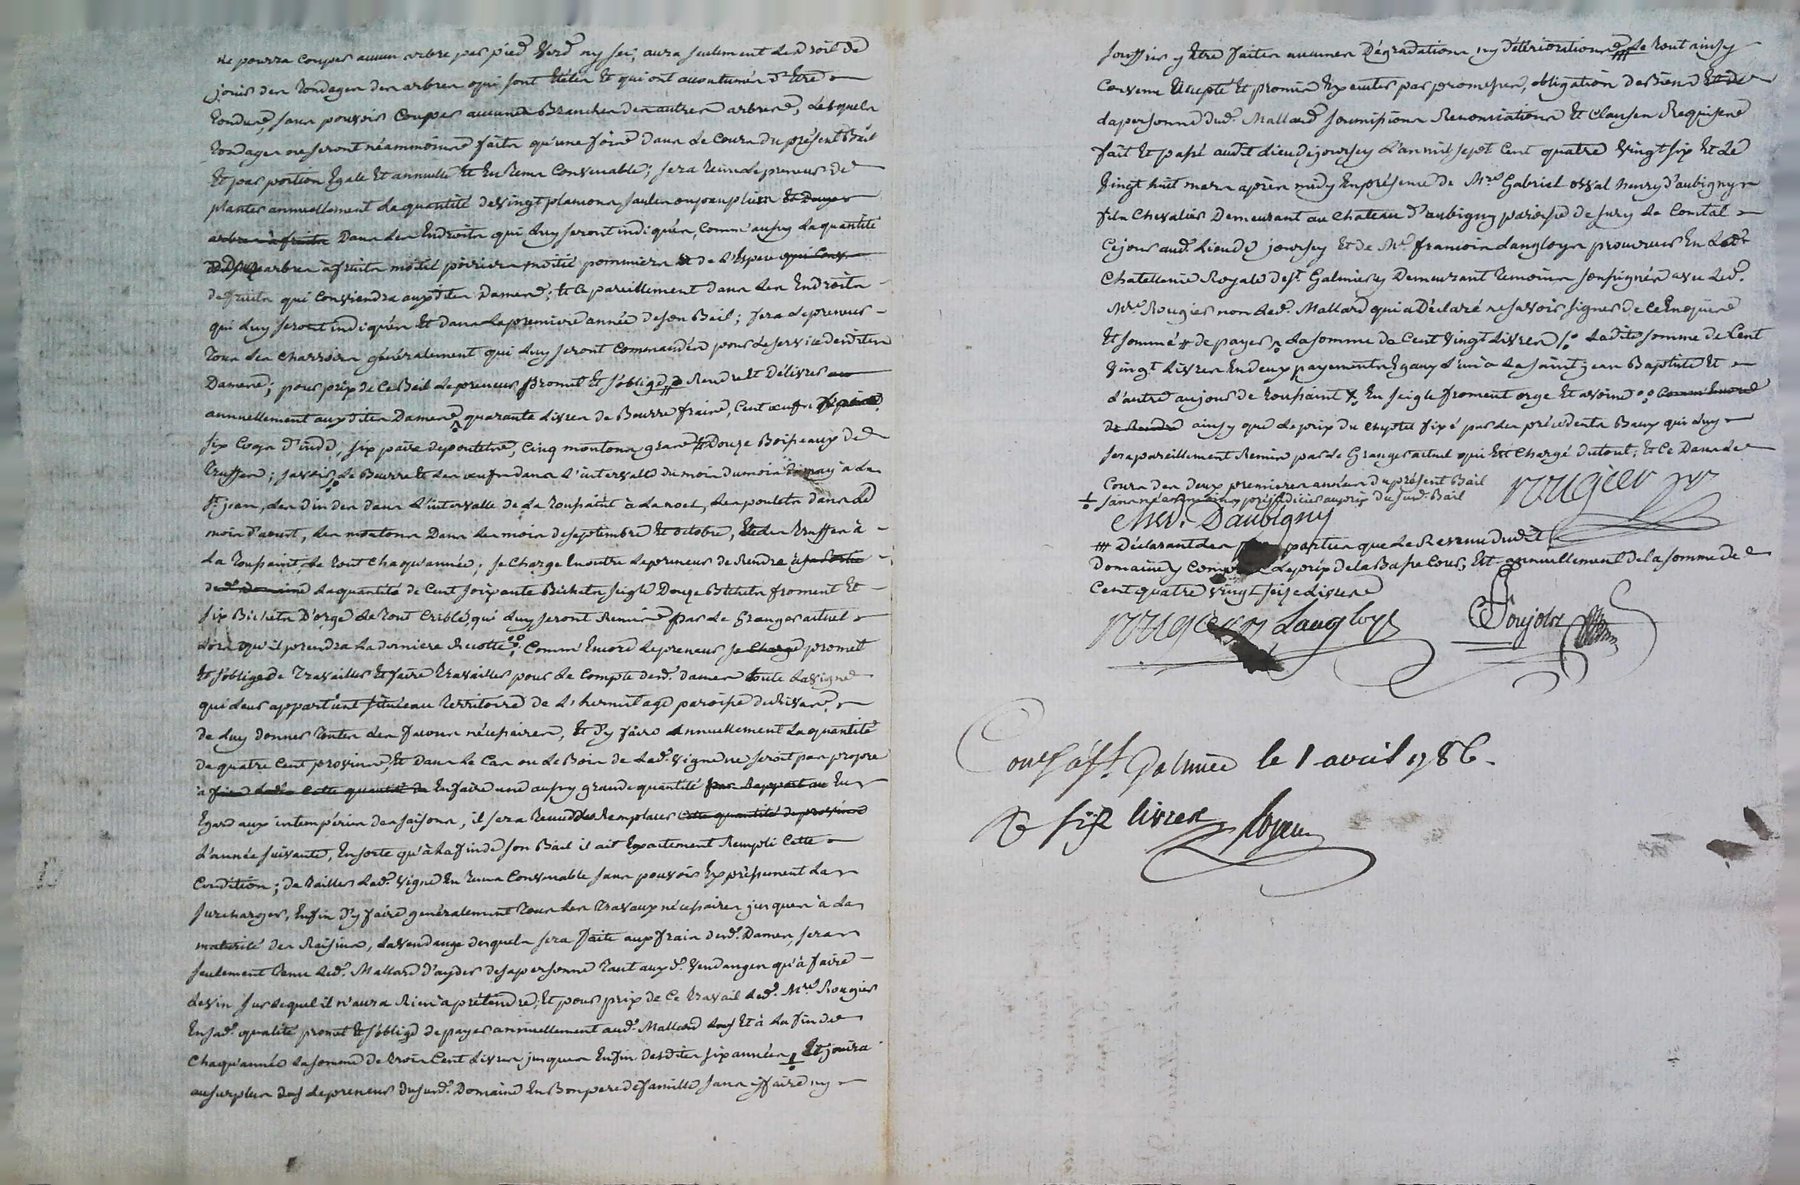 ne pourra couper aucun arbre par pied verd ny sec; aura seulement le droit de
jouir des tondages des arbres qui sont etétés et qui ont accoutumés d'etre
tondus, sans pouvoir couper aucunes branches des autres arbres, lesquels
tondages ne seront néammoins faits qu'une fois dans le cours du présent Bail
et par portion egale et annuelle et en tems convenable; sera tenu le preneur de
planter annuellement la quantité de vingt plansons, saules ou peupliers et douze
arbres à fruits dans les endroits qui luy seront indiqués, comm'aussy la quantité
arbres à fruits moitié poiriers moitié pommiers et de l'espece qui conv
de fruits qui conviendra auxdites Dames; et ce pareillement dans les endroits
qui luy seront indiqués et dans la premiere année de son Bail; fera le preneur
tous les charroirs généralement qui luy seront commandés pour le service desdites
Dames; pour prix de ce Bail le preneur promet et s'oblige rendre et délivrer
annuellement auxdites Dames quarante livres de Beurre frais, cent œufs
six coqs d'inde, six paire de poulets, cinq moutons gras et Douze Boisseaux de
truffes; savoir le Beurre et les œufs dans l'intervalle du mois du mois de may à la
st jean, les dindes dans l'intervalle de la toussaint à la noel, les poulets dans le
mois d'aoust, les moutons dans les mois de septembre et octobre, et les truffes à
la toussaint, le tout chaqu'année; se charge en outre le preneur de rendre à la sortie
dud. domaine la quantité de cent soixante Bichets seigle Douze Bichets froment et
six Bichets d'orge le tout criblé, qui luy seront remis par le Granger actuel
lors qu'il prendra la derniere recolte; Comm'encore le preneur se charge promet
et s'oblige de travailler et faire travailler pour le compte desd. dames toute la vigne
qui leur appartient située au territoire de l'hermitage paroisse de Rivas,
de luy donner toutes les façons nécessaires, et d'y faire annuellement la quantité
de quatre cent provins, et dans le cas ou le Bois de lad. vigne ne seroit pas propre
à fournir cette quantité de en faire une aussy grande quantité par rapport au eu
egard aux intempéries des saisons, il sera tenu de les remplacer cette quantité de provins
l'année suivante, en sorte qu'à la fin de son Bail il ait exactement rempli cette
condition; de tailler lad. vigne en tems convenable sans pouvoir expressement la
surcharger, enfin d'y faire généralement tous les travaux nécessaires jusques à la
maturité des raisins, la vendange desquels sera faite aux frais desd. Dames, sera
seulement tenu led. Mallard d'ayder de sa personne tant auxd. vendanges qu'à faire
le vin sur lequel il n'aura rien à prétendre; et pour prix de ce travail led. Mre Rougier
en sad. qualité promet et s'oblige de payer annuellement aud. Mallard lors et à la fin de
chaqu'année la somme de trois cent livres jusques en fin desdites six années et jouira
au surplus led. le preneur dususd. Domaine en Bon pere de famille sans y faire ny
souffrir y être faites aucunes dégradations ny détériorations le tout ainsy
convenu accepté et promis executer par promesses, obligation de Biens et de
la personne dud. Mallard soumissions renonciations et clauses requises
fait et passé audit lieu de joursey l'an mil sept cent quatre vingt six et le
vingt huit mars après midy en présence de Mre Gabriel osval henry d'aubigny
fils chevalier demeurant au chateau d'aubigny paroisse de sury le comtal
ce jour aud. lieu de joursey et de Me francois Langloys procureur en lad.
chatellenie royale de st. Galmier y demeurant temoins soussignés avec led.
Mre Rougier non led. Mallard qui a déclaré ne savoir signer de ce enquis
et sommé de payer la somme de cent vingt livres ladite somme de cent
vingt livres en deux payements egaux l'un à la saint jean Baptiste et
l'autre au jour de toussaint en seigle froment orge et avoine comm'encore
de rendre ainsy que le prix du cheptel fixé par les précédents Baux qui luy
sera pareillement remis par le Granger actuel qui est chargé du tout; et ce dans le
cours des deux premieres années du présent Bail
sans néammoins préjudicier au prix dususd. Bail
rougier
Chev. Daubigny
Déclarant les parties que le revenu dudit
domaine y compris le prix de la Basse cour, est annuellement de la somme de
cent quatre vingt seize livres
rougier Langloys Ponjolet
Con^lé à St. Galmier le 1 avril 1786.
R six livres